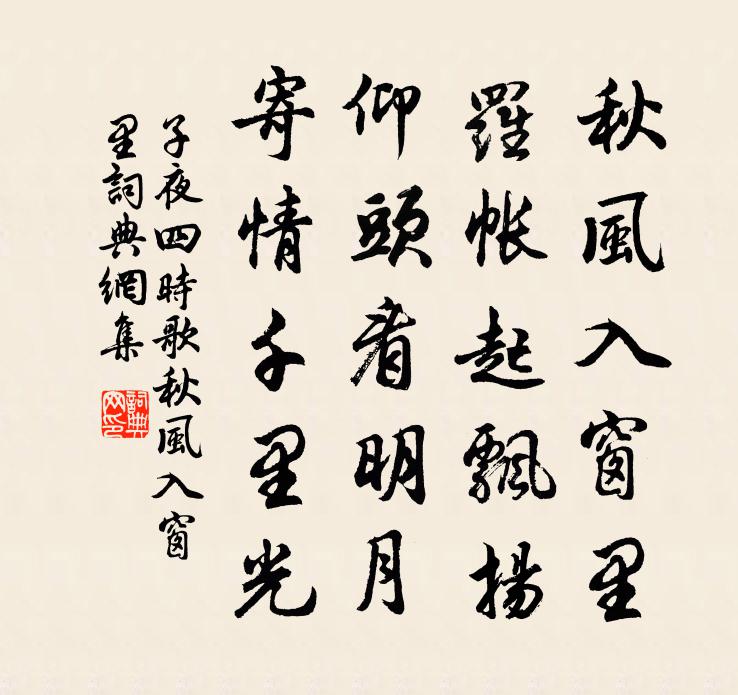 秋風入窗里
羅帳起飄揚
仰頭看明月
寄情千里光
子夜四時歌秋風入窗
里詞典網集
詞典
网印